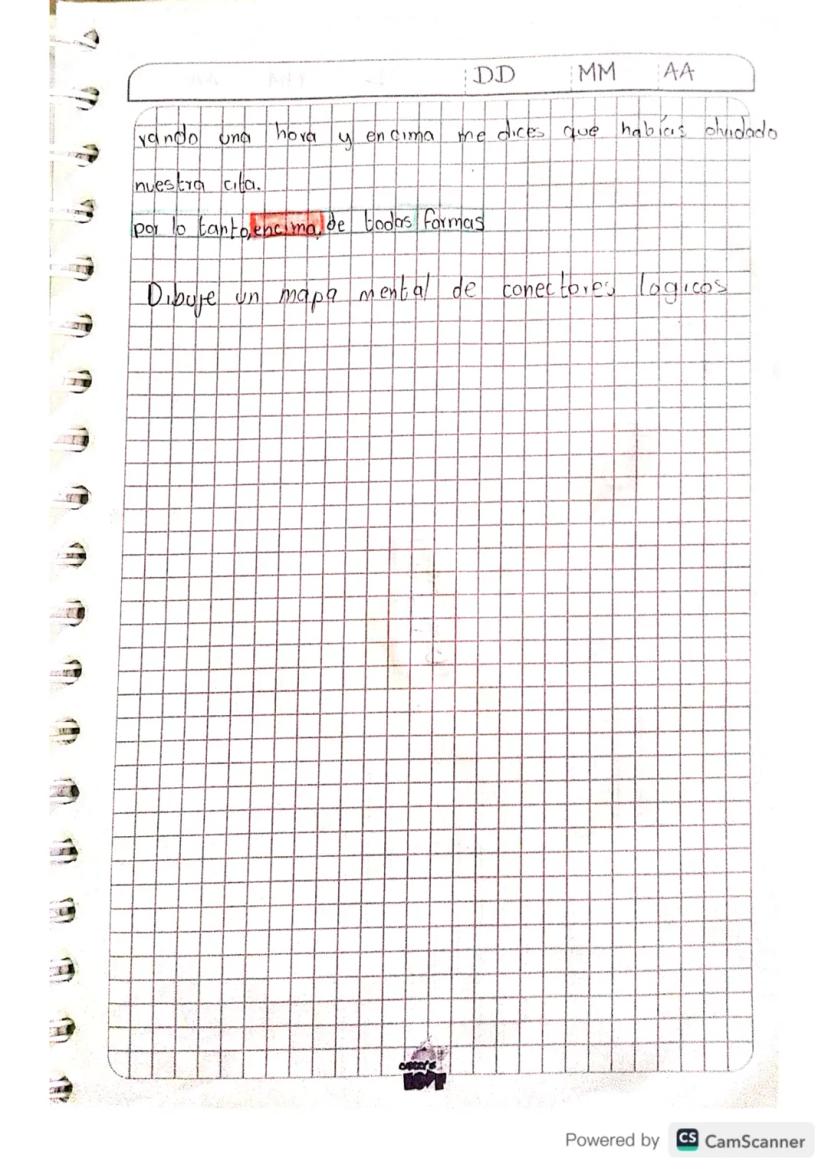 DD MM AA
rando una hora y encima me dices que habías olvidado
nuestra cita.
por lo tanto, encima, de todas formas
Dibuje un mapa mental de conectores logicos
Powered by CS CamScanner